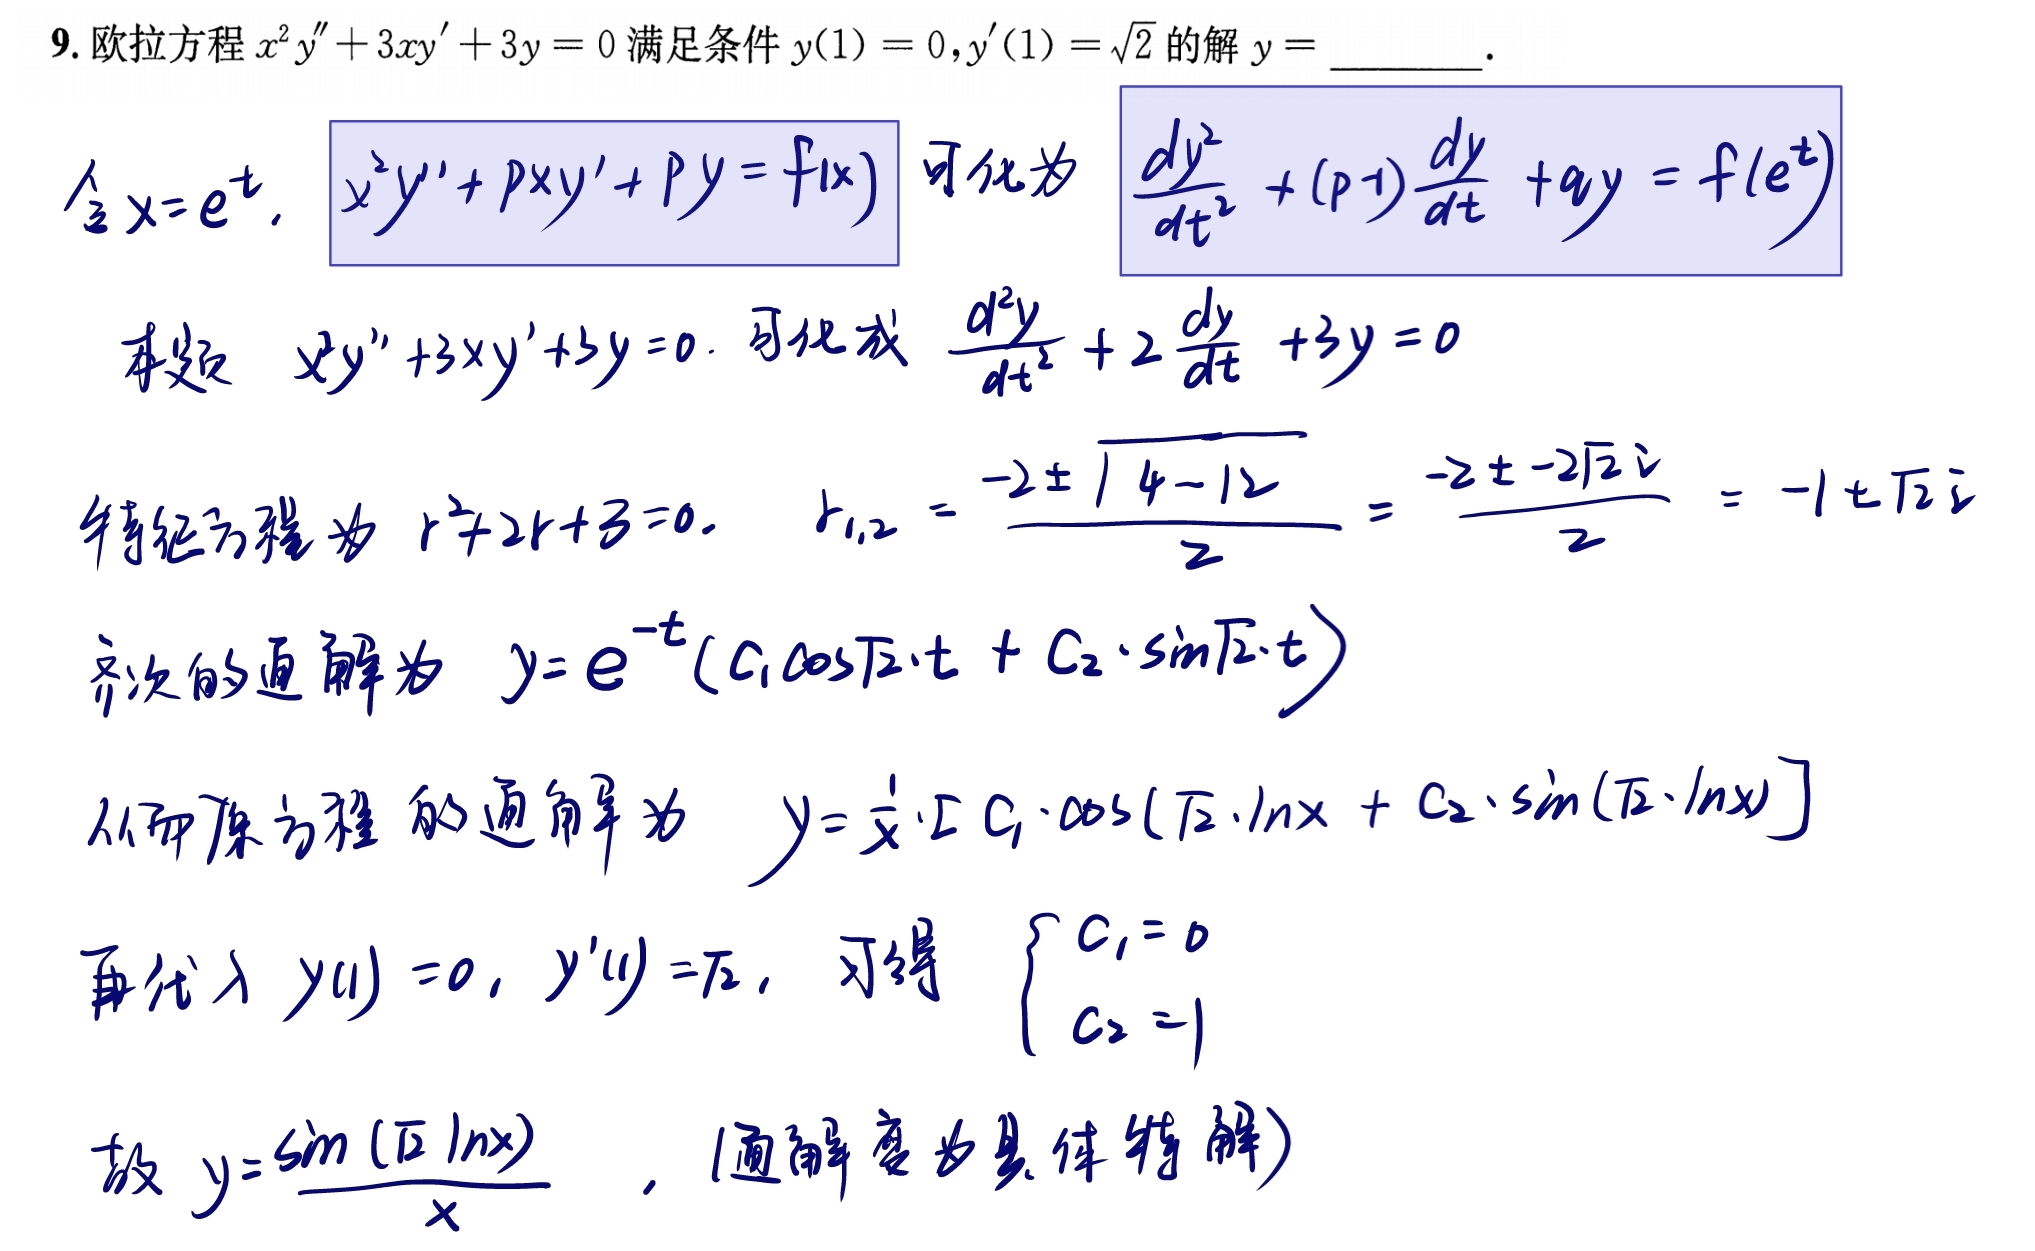 9. 欧拉方程 x²y″ + 3xy′ + 3y = 0 满足条件 y(1) = 0, y′(1) = √2 的解 y = ________.
令 x = e^t, x²y'' + pxy' + py = f(x) 可化为 dy²/dt² + (p-1) dy/dt + qy = f(e^t)
本题 x²y'' + 3xy' + 3y = 0. 可化成 d²y/dt² + 2 dy/dt + 3y = 0
特征方程为 r² + 2r + 3 = 0. r₁,₂ = (-2 ± √(4-12))/2 = (-2 ± -2√2 i)/2 = -1 ± √2 i
齐次的通解为 y = e^(-t) (C₁ cos√2·t + C₂·sin√2·t)
从而原方程的通解为 y = 1/x · [C₁·cos(√2·lnx + C₂·sin(√2·lnx)]
再代入 y(1) = 0, y'(1) = √2, 可得 { C₁ = 0
C₂ = 1
故 y = sin(√2 lnx)/x , (通解变为具体特解)